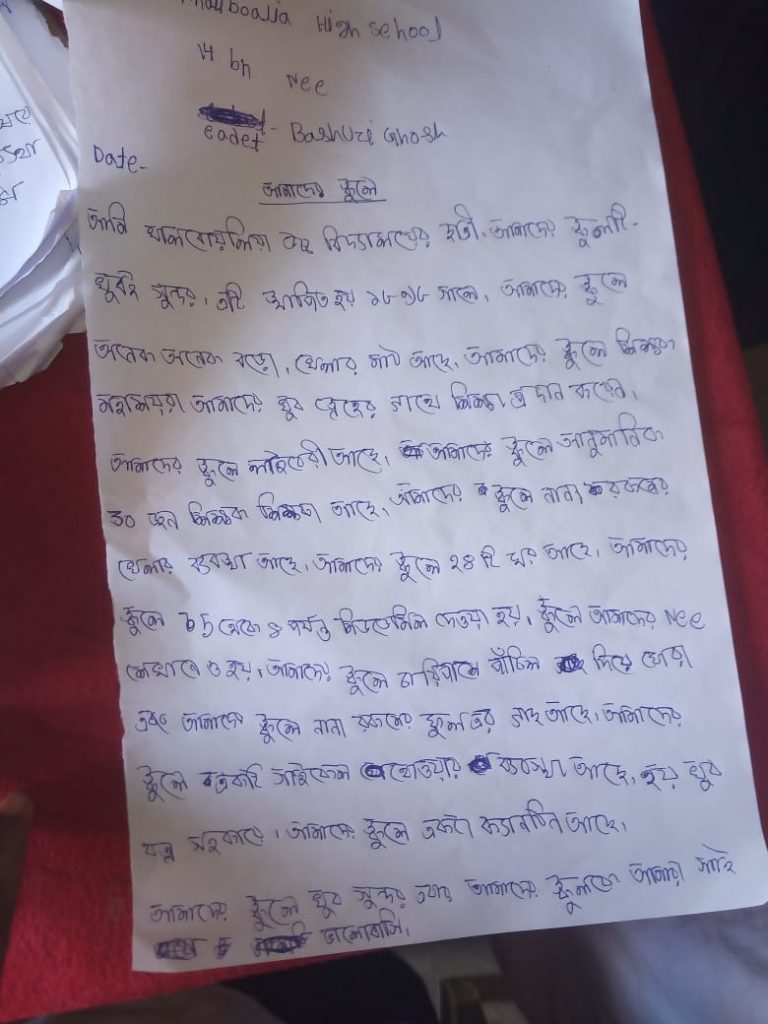 High school
14 bn Nee
cadet - Bashuri Ghosh
Date-
আমাদের স্কুলে
আমি খালবোয়ালিয়া উচ্চ বিদ্যালয়ের ছাত্রী, আমাদের স্কুলটি-
খুবই সুন্দর, এটি স্থাপিত হয় সালে, আমাদের স্কুলে
অনেক অনেক বড়ো, খেলার মাঠ আছে, আমাদের স্কুলে শিক্ষক
মহাশয়রা আমাদের খুব স্নেহের সাথে শিক্ষা প্রদান করেন,
আমাদের স্কুলে লাইবেরী আছে, আমাদের স্কুলে আনুমানিক
30 জন শিক্ষক শিক্ষিকা আছে, আমাদের স্কুলে নানা রকমের
খেলার ব্যবস্থা আছে, আমাদের স্কুলে ২৪ টি ঘর আছে, আমাদের
স্কুলে থেকে ৪ পর্যন্ত মিডডেমিল দেওয়া হয়, স্কুলে আমাদের Nee
শেখানো ও হয়, আমাদের স্কুলে চারিপাশে পাঁচিল দিয়ে ঘেরা
এবং আমাদের স্কুলে নানা রকমের ফুলের গাছ আছে, আমাদের
স্কুলে একটি সাইকেল থোওয়ার ব্যবস্থা আছে, হয় খুব
যত্ন সহকারে, আমাদের স্কুলে একটা আছে,
আমাদের স্কুলে খুব সুন্দর আমাদের স্কুলকে আমরা সবাই
ভালোবাসি,